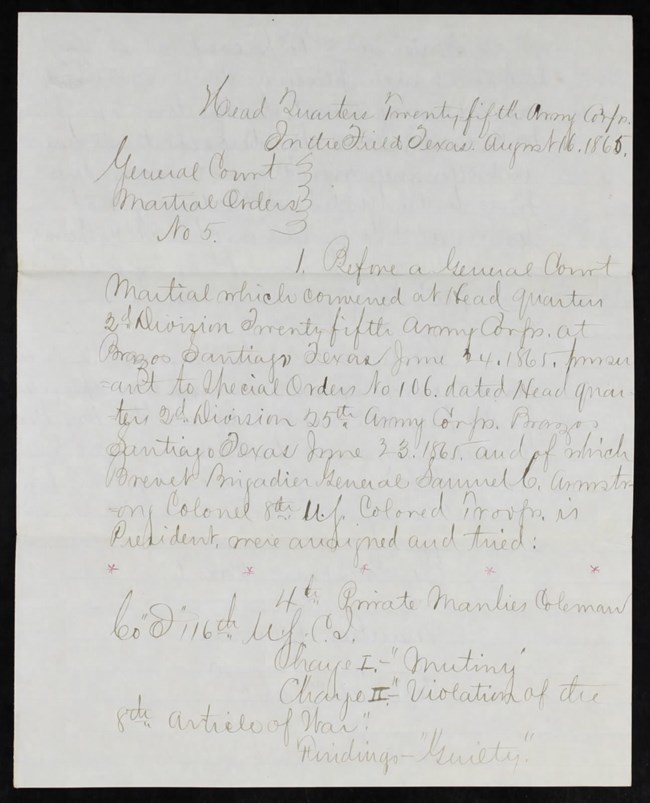 Head Quarters Twenty fifth Army Corps.
In the Field Texas. August 16. 1865.
General Court
Martial Orders
No 5.
1. Before a General Court
Martial which convened at Head quarters
2d Division Twenty fifth Army Corps. at
Brazos Santiago Texas June 24. 1865. pursu
-ant to Special Orders No 106. dated Head quar
ters 2d Division 25th Army Corps. Brazos
Santiago Texas June 23. 1865. and of which
Brevet Brigadier General Samuel C. Armstr
-ong Colonel 8th U.S. Colored Troops. is
President. were arraigned and tried:
* * * * *
4th Private Manlies Coleman
Co "D" 116th U.S.C.I.
Charge I.- "Mutiny"
Charge II - "Violation of the
8th Article of War".
Findings - "Guilty."